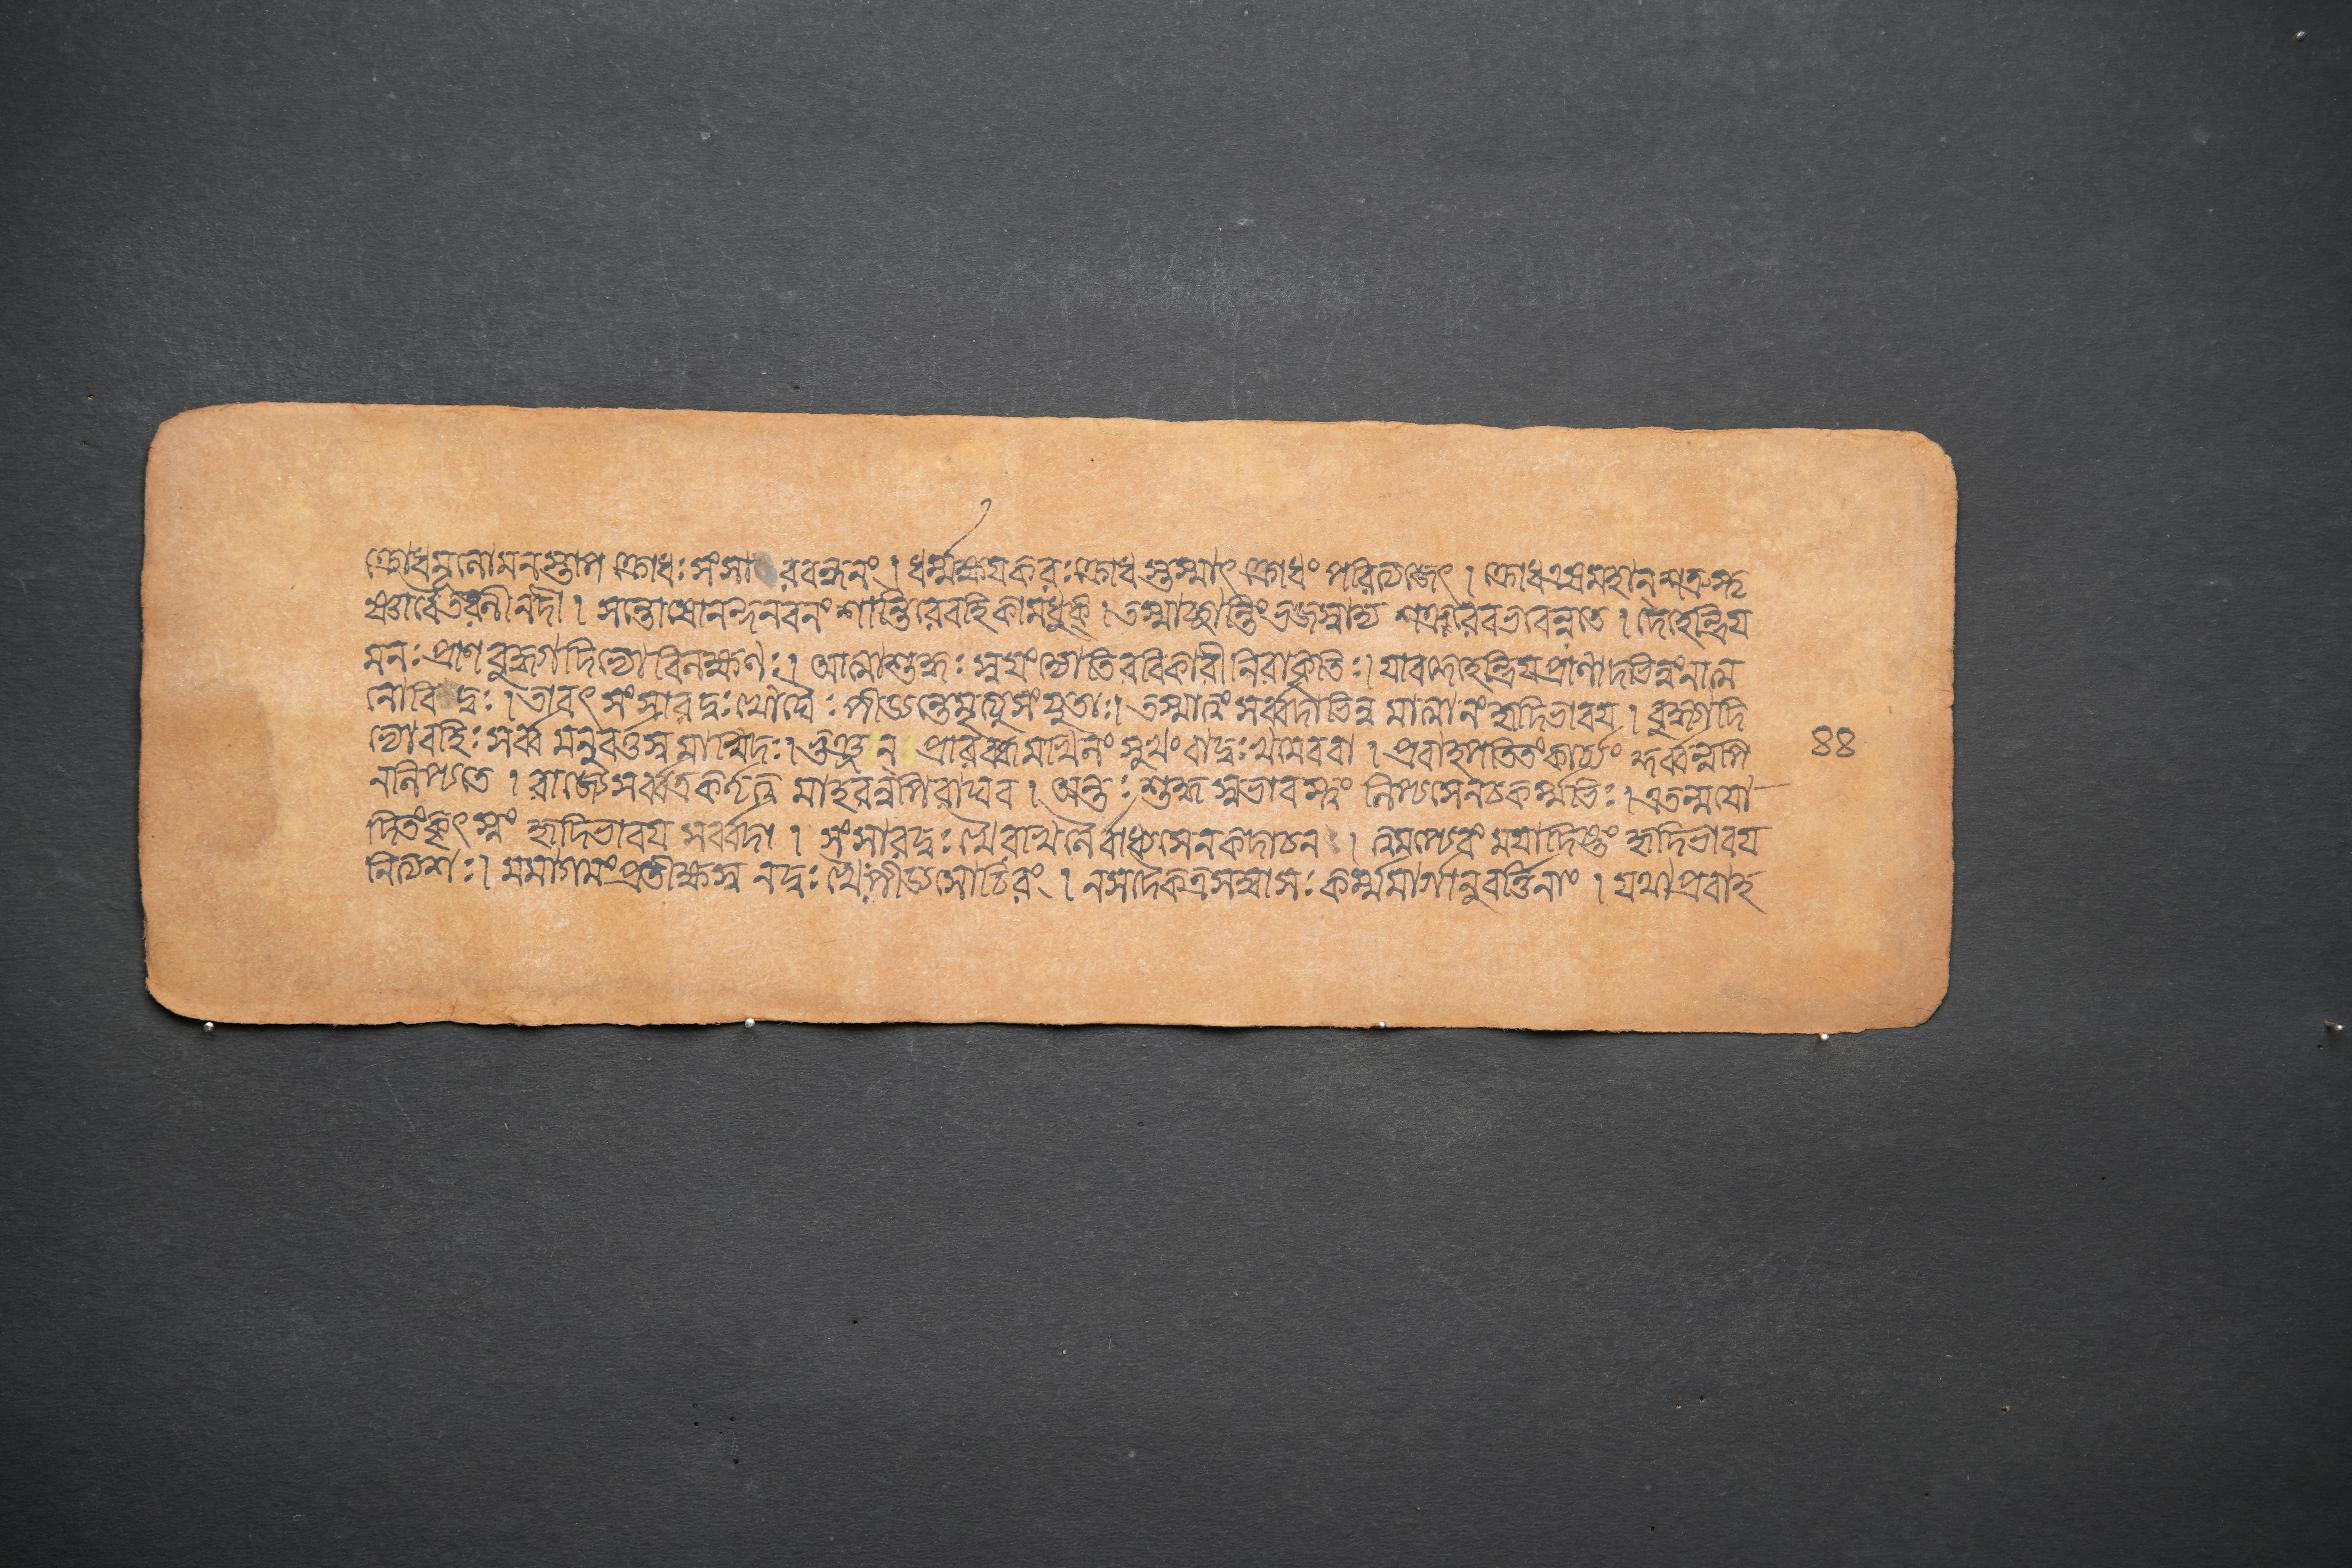 ক্রোধমূলোমনস্তাপ ক্রোধঃ সংসারবন্ধনং । ধর্ম্মক্ষয়করঃ ক্রোধ স্তস্মাৎ ক্রোধং পরিত্যজেৎ । ক্রোধএষমহান্ শত্রুস্তৃ
ষ্ণাবৈতরণীনদী । সন্তোষোনন্দনবনং শান্তিরেবহিকামধুক্ । তস্মাচ্ছান্তিংভজস্বাদ্য শত্রুরেবভবেন্নতে । দেহেন্দ্রিয়
মনঃপ্রাণবুদ্ধ্যাদিভ্যোবিলক্ষণঃ । আত্মাশুদ্ধঃ স্বয়ংজ্যোতিরবিকারীনিরাকৃতিঃ । যাবদ্দেহেন্দ্রিয়প্রাণাদভিন্নংনাত্ম
নোবিদুঃ । তাবৎ সংসারদুঃখৌঘৈঃ পীড্যন্তেমৃত্যুসংযুতাঃ । তস্মাত্ত্বং সর্ব্বদাভিন্ন মাত্মানংহৃদিভাবয় । বুদ্ধ্যাদি
ভ্যোবহিঃ সর্ব্ব মনুবর্ত্তস্ব মাখিদঃ । ভুঞ্জন্ প্রারব্ধমখিলং সুখংবাদুঃখমেববা । প্রবাহপতিতংকার্য্যং কুর্ব্বন্নপি ৪৪
নলিপ্যতে । বাহ্যেসর্ব্বত্রকর্তৃত্ব মাহবন্নপিরাঘব । অন্তঃ শুদ্ধ স্বভাবস্ত্বং লিপ্যসেনচকর্ম্মভিঃ । এতন্ময়ো
দিতংকৃৎস্নং হৃদিভাবয় সর্ব্বদা । সংসারদুঃখৈরখিলৈর্বাধ্যসেনকদাচন । ত্বমপ্যেবং ময়াদিষ্টং হৃদিভাবয়
নিত্যশঃ । মমাগমংপ্রতীক্ষস্ব নদুঃখৈঃ পীড্যসেচিরং । নসদৈকত্রসম্বাসঃ কর্ম্মমার্গানুবর্ত্তিনাং । যথাপ্রবাহ